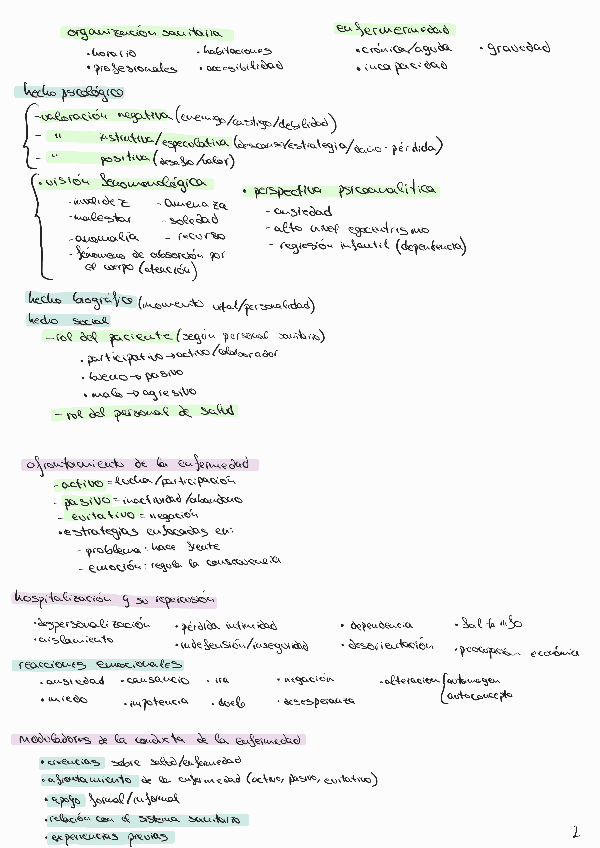 organización sanitaria
enfermermedad
· horario · habitaciones
· crónica/aguda · gravedad
· profesionales · accesibilidad
· incapacidad
hecho psicológico
- valoración negativa (enemigo/castigo/debilidad)
- " (descanso/estrategia/daño · pérdida)
- " positiva (desafío/valor)
· visión fenomenológica
· perspectiva psicoanalítica
· invalidez - amenaza
- ansiedad
- malestar - soledad
- alto nivel egocentrismo
- anomalía - recurso
- regresión infantil (dependencia)
- fenómeno de absorción por
el cuerpo (atención)
hecho biográfico (momento vital/personalidad)
hecho social
- rol del paciente (según personal sanitario)
· participativo → activo/colaborador
· bueno → pasivo
· malo → agresivo
- rol del personal de salud
afrontamiento de la enfermedad
- activo = lucha/participación
- pasivo = inactividad/abandono
- evitativo = negación
· estrategias enfocadas en:
- problema · hace frente
- emoción: regula la consecuencia
hospitalización y su repercusión
· despersonalización · pérdida intimidad · dependencia · falta info
· aislamiento · indefensión/inseguridad · desorientación · preocupación económica
reacciones emocionales
· ansiedad · cansancio · ira · negación · alteración autoimagen
autoconcepto
· miedo · impotencia · duelo · desesperanza
moduladores de la conducta de la enfermedad
· creencias sobre salud/enfermedad
· afrontamiento de la enfermedad (activo, pasivo, evitativo)
· apoyo formal/informal
· relación con el sistema sanitario
· experiencias previas
2